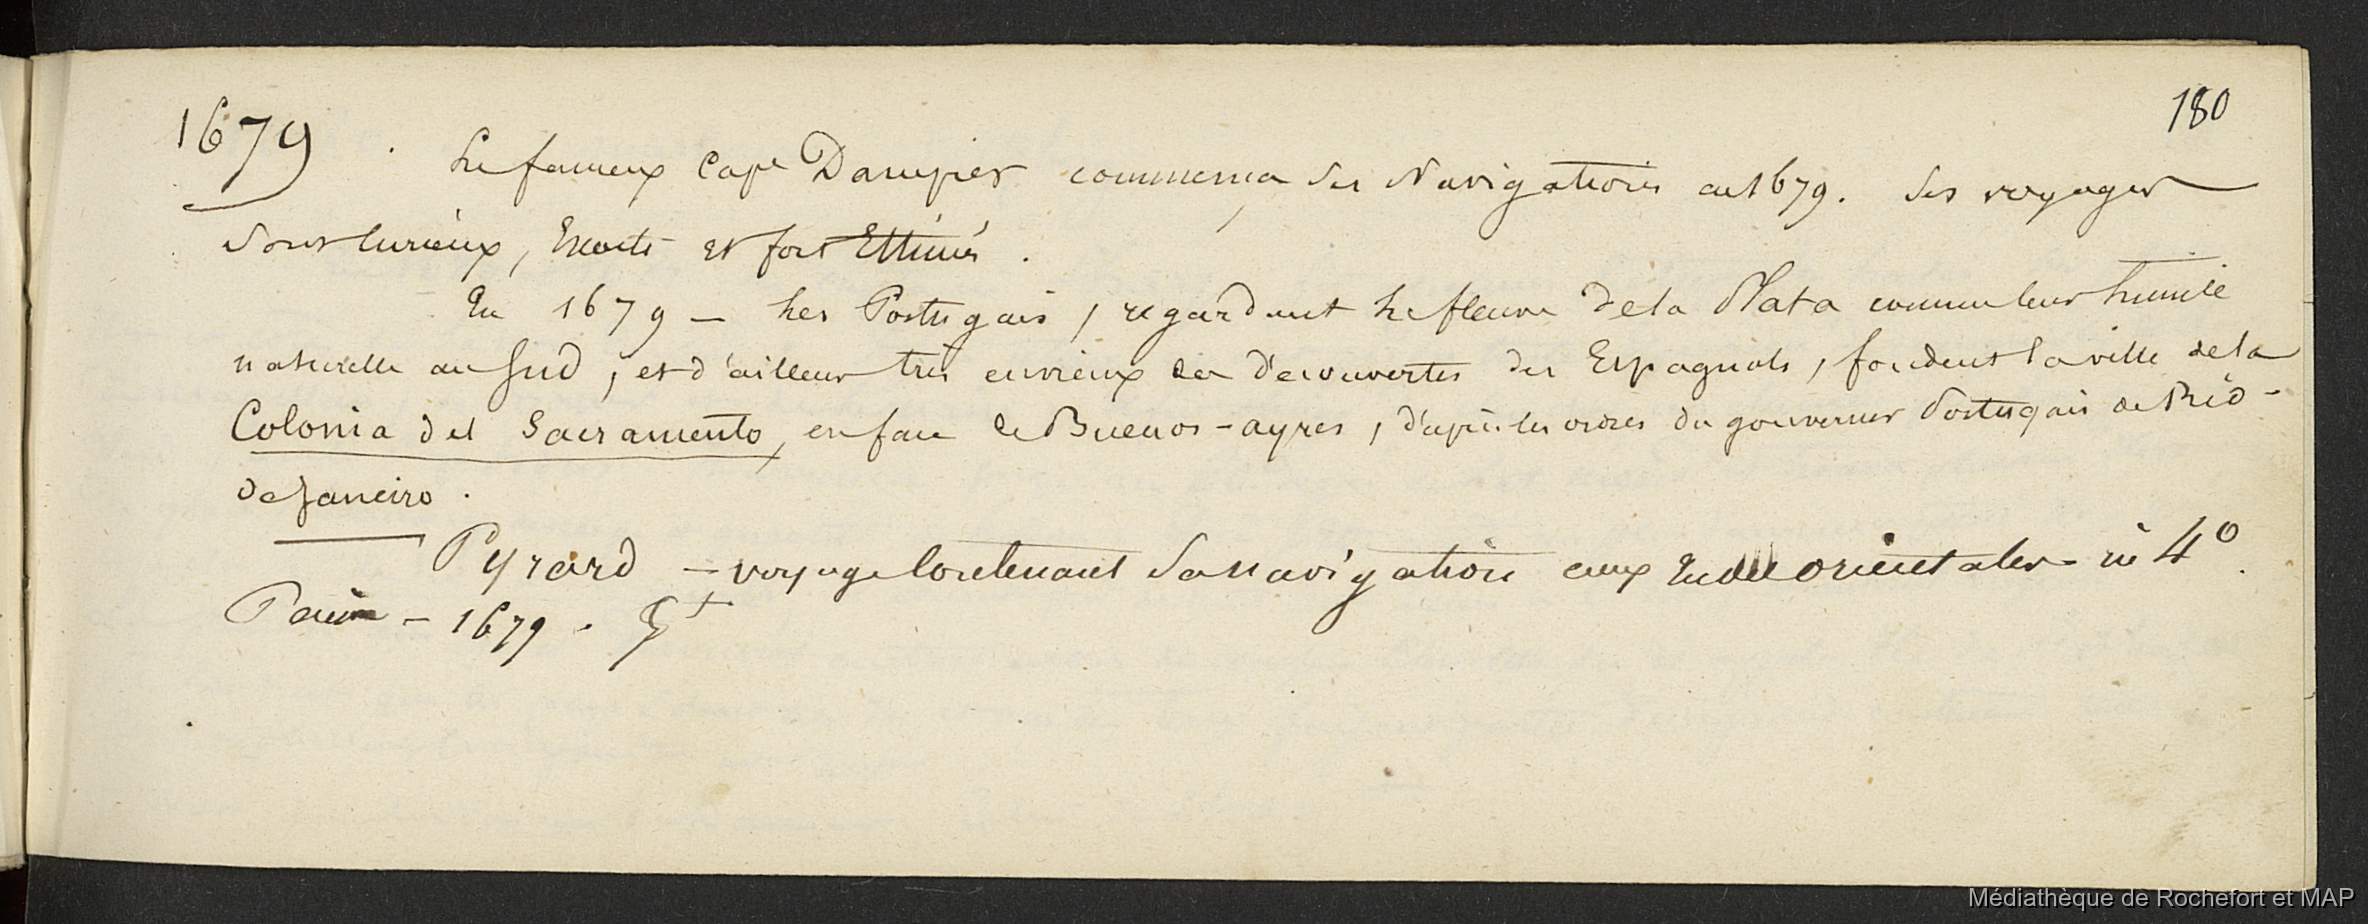 180
1679 . Le fameux Cape Dampier commença ses Navigations en 1679. Ses voyages
sont curieux, Exacts et fort Estimés .
En 1679 — Les Portugais, regardant le fleuve de la Plata comme leur limite
naturelle au sud, et d'ailleurs très envieux des découvertes des Espagnols, fondent la ville de la
Colonia del Sacramento, en face de Buenos-ayres, d'après les ordres du gouverneur Portugais de Rió-
de Janeiro .
Pyrard — voyage contenant sa navigation aux Indes orientales - in 4º.
Paris — 1679 .
Médiathèque de Rochefort et MAP